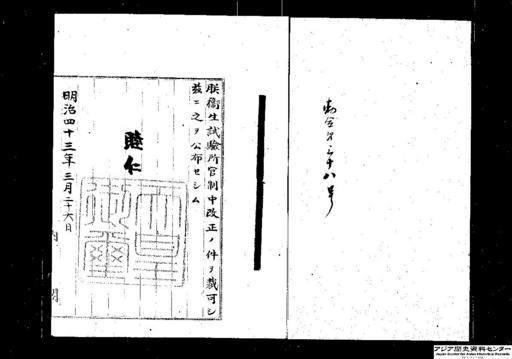 勅令第三十八号
朕衛生試験所官制中改正ノ件ヲ裁可シ
茲ニ之ヲ公布セシム
睦仁
天皇御璽
明治四十三年三月二十六日
内閣
アジア歴史資料センター
Japan Center for Asian Historical Records